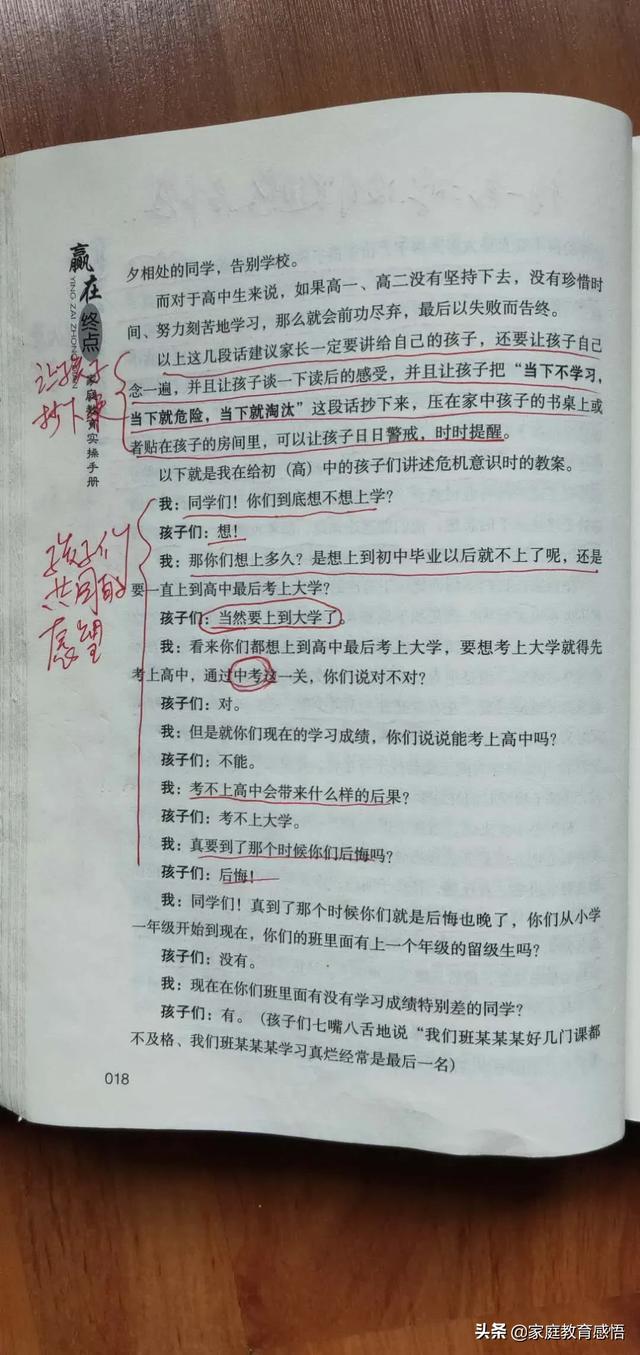 赢在终点
YING ZAI ZHONG DIAN
家庭教育实操手册
夕相处的同学，告别学校。
而对于高中生来说，如果高一、高二没有坚持下去，没有珍惜时
间、努力刻苦地学习，那么就会前功尽弃，最后以失败而告终。
以上这几段话建议家长一定要讲给自己的孩子，还要让孩子自己
念一遍，并且让孩子谈一下读后的感受，并且让孩子把“当下不学习，
当下就危险，当下就淘汰”这段话抄下来，压在家中孩子的书桌上或
者贴在孩子的房间里，可以让孩子日日警戒，时时提醒。
以下就是我在给初（高）中的孩子们讲述危机意识时的教案。
我：同学们！你们到底想不想上学？
孩子们：想！
我：那你们想上多久？是想上到初中毕业以后就不上了呢，还是
要一直上到高中最后考上大学？
孩子们：当然要上到大学了。
我：看来你们都想上到高中最后考上大学，要想考上大学就得先
考上高中，通过中考这一关，你们说对不对？
孩子们：对。
我：但是就你们现在的学习成绩，你们说说能考上高中吗？
孩子们：不能。
我：考不上高中会带来什么样的后果？
孩子们：考不上大学。
我：真要到了那个时候你们后悔吗？
孩子们：后悔！
我：同学们！真到了那个时候你们就是后悔也晚了，你们从小学
一年级开始到现在，你们的班里面有上一个年级的留级生吗？
孩子们：没有。
我：现在在你们班里面有没有学习成绩特别差的同学？
孩子们：有。（孩子们七嘴八舌地说“我们班某某某好几门课都
不及格、我们班某某某学习真烂经常是最后一名）
018
让孩子
抄下来
孩子们
共同的
愿望
头条 @家庭教育感悟